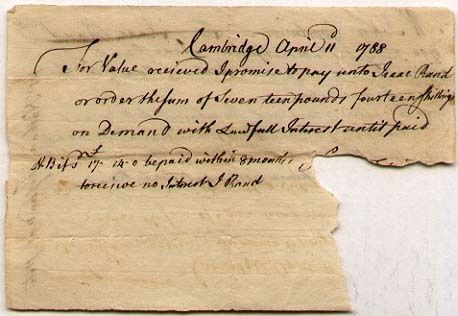 Cambridge April 11 1788
For Value received I promise to pay unto Isaac Rand
or order the sum of Seventeen pounds fourteen Shillings
on Demand with Lawfull Interest until paid
17- 14-0 be paid within 8 months
to receive no Interest I Rand